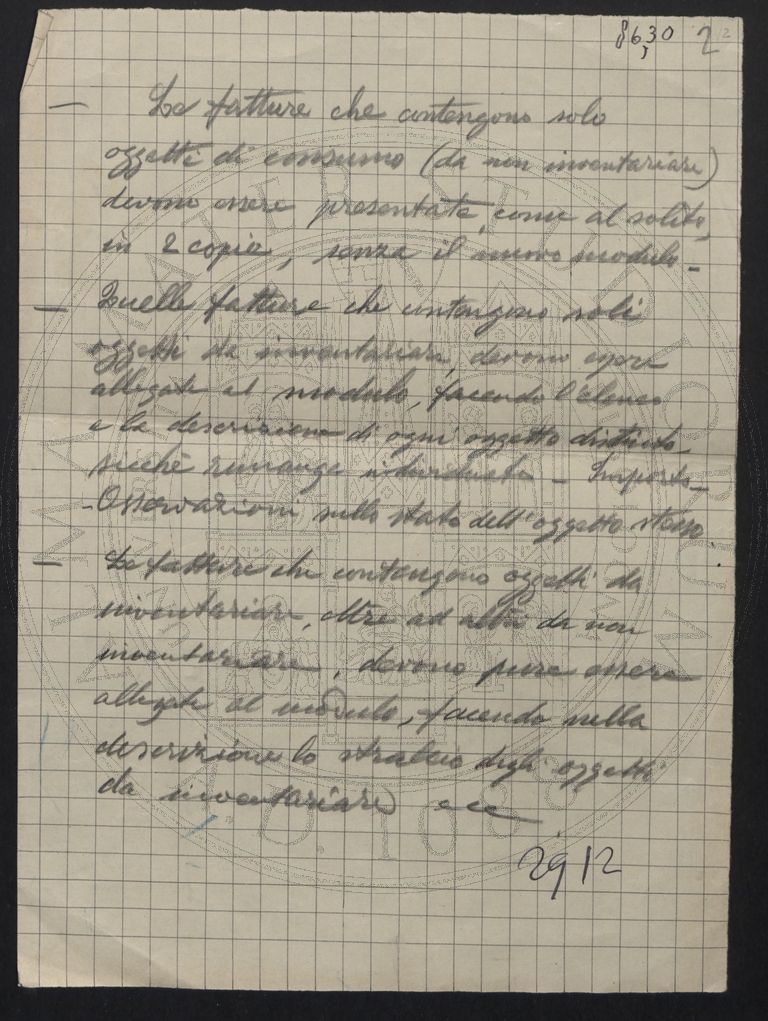 8630 2
— Le fatture che contengono solo
oggetti di consumo (da non inventariare)
devono essere presentate, come al solito,
in 2 copie, senza il nuovo modulo -
— Quelle fatture che contengono soli
oggetti da inventariare, devono essere
allegate al modulo, facendo l'elenco
e la descrizione di ogni oggetto distinto
sicchè rimanga individuato - Importo -
- Osservazioni sullo stato dell'oggetto stesso.
— Le fatture che contengono oggetti da
inventariare, oltre ad altri da non
inventariare, devono pure essere
allegate al modulo, facendo nella
descrizione lo stralcio degli oggetti
da inventariare ecc
29 12
ALMA MATER STUDIORUM
A.D. 1088